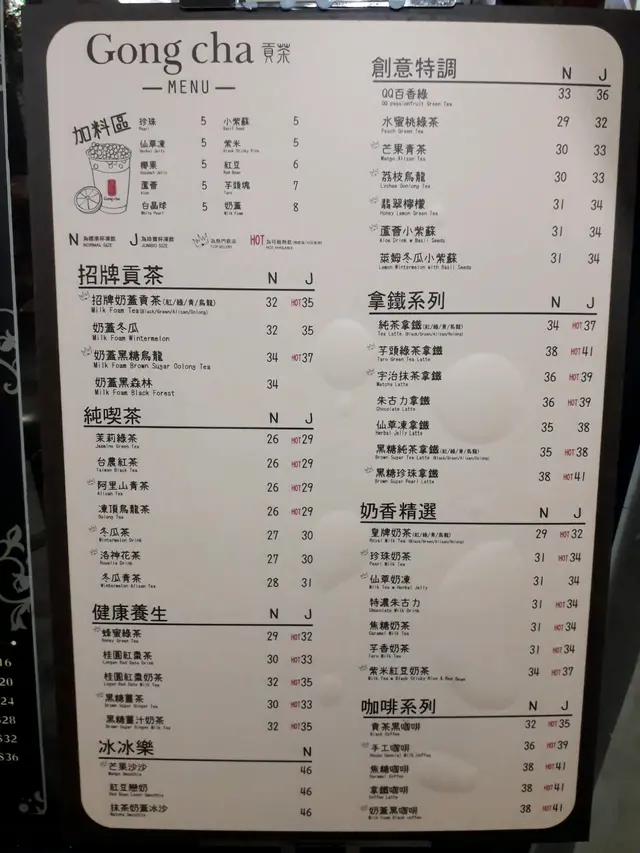 Gong cha 貢茶
MENU
加料區
珍珠 5
Pearl
仙草凍 5
Herbal Jelly
椰果 5
Coconut Jelly
蘆薈 5
Aloe
白晶球 5
White Pearl
小紫蘇 5
Basil Seed
紫米 5
Black Sticky Rice
紅豆 6
Red Bean
芋頭塊 7
Taro
奶蓋 8
Milk Foam
Gong cha
N 為標準杯凍飲
NORMAL SIZE
J 為珍寶杯凍飲
JUMBO SIZE
為熱門飲品
TOP SELLERS
HOT 為可做熱飲
HOT AVAILABLE
招牌貢茶 N J
招牌奶蓋貢茶(紅/綠/青/烏龍) 32 HOT35
Milk Foam Tea(Black/Green/Alisan/Oolong)
奶蓋冬瓜 32 35
Milk Foam Wintermelon
奶蓋黑糖烏龍 34 HOT37
Milk Foam Brown Sugar Oolong Tea
奶蓋黑森林 34
Milk Foam Black Forest
純喫茶 N J
茉莉綠茶 26 HOT29
Jasmine Green Tea
台農紅茶 26 HOT29
Taiwan Black Tea
阿里山青茶 26 HOT29
Alisan Tea
凍頂烏龍茶 26 HOT29
Oolong Tea
冬瓜茶 27 30
Wintermelon Drink
洛神花茶 27 30
Roselle Drink
冬瓜青茶 28 31
Wintermelon Alisan Tea
健康養生 N J
蜂蜜綠茶 29 HOT32
Honey Green Tea
桂圓紅棗茶 30 HOT33
Longan Red Date Drink
桂圓紅棗奶茶 32 HOT35
Longan Red Date Milk Tea
黑糖薑茶 30 HOT33
Brown Sugar Ginger Tea
黑糖薑汁奶茶 32 HOT35
Brown Sugar Ginger Milk Tea
冰冰樂 N
芒果沙沙 46
Mango Smoothie
紅豆戀奶 46
Red Bean Lover Smoothie
抹茶奶蓋冰沙 46
Matcha Smoothie
創意特調 N J
QQ百香綠 33 36
QQ passionfruit Green Tea
水蜜桃綠茶 29 32
Peach Green Tea
芒果青茶 30 33
Mango Alisan Tea
荔枝烏龍 30 33
Lychee Oolong Tea
翡翠檸檬 31 34
Honey Lemon Green Tea
蘆薈小紫蘇 31 34
Aloe Drink w Basil Seeds
萊姆冬瓜小紫蘇 31 34
Lemon Wintermelon with Basil Seeds
拿鐵系列 N J
純茶拿鐵(紅/綠/青/烏龍) 34 HOT37
Tea Latte (Black/Green/Alisan/Oolong)
芋頭綠茶拿鐵 38 HOT41
Taro Green Tea Latte
宇治抹茶拿鐵 36 HOT39
Matcha Latte
朱古力拿鐵 36 HOT39
Chocolate Latte
仙草凍拿鐵 35 38
Herbal Jelly Latte
黑糖純茶拿鐵(紅/綠/青/烏龍) 35 HOT38
Brown Sugar Tea Latte (Black/Green/Alisan/Oolong)
黑糖珍珠拿鐵 38 HOT41
Brown Sugar Pearl Latte
奶香精選 N J
皇牌奶茶(紅/綠/青/烏龍) 29 HOT32
Royal Milk Tea (Black/Green/Alisan/Oolong)
珍珠奶茶 31 HOT34
Pearl Milk Tea
仙草奶凍 31 34
Milk Tea w Herbal Jelly
特濃朱古力 31 HOT34
Chocolate Milk Drink
焦糖奶茶 31 HOT34
Caramel Milk Tea
芋香奶茶 31 HOT34
Taro Milk Tea
紫米紅豆奶茶 34 HOT37
Milk Tea w Black Sticky Rice & Red Bean
咖啡系列 N J
貢茶黑咖啡 32 HOT35
Black Coffee
手工咖啡 36 HOT39
House Special Milk Coffee
焦糖咖啡 38 HOT41
Caramel Coffee
拿鐵咖啡 38 HOT41
Coffee Latte
奶蓋黑咖啡 38 HOT41
Milk Foam Black coffee
16
20
24
$28
$32
$36